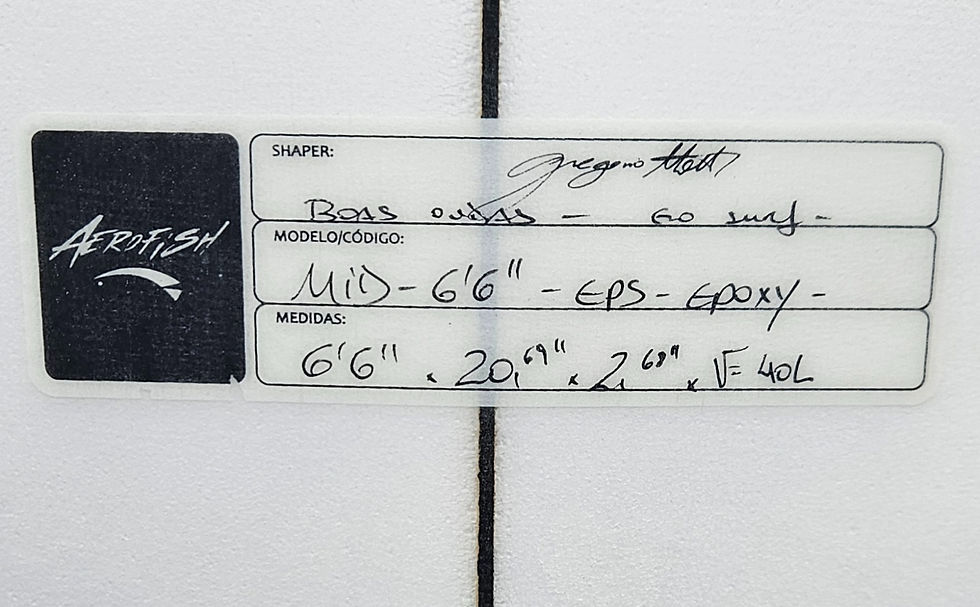 AEROFISH
SHAPER:
BOAS ONDAS - GO surf -
MODELO/CÓDIGO:
MiD - 6'6" - EPS - EPOXY -
MEDIDAS:
6'6" x 20,69" x 2,68" x V= 40L